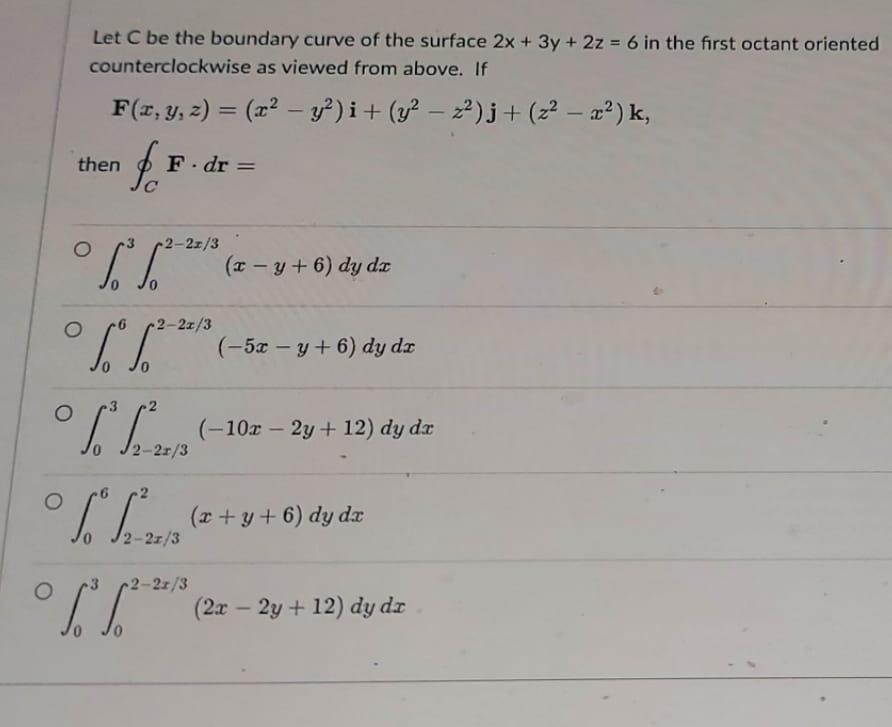 Let C be the boundary curve of the surface 2x + 3y + 2z = 6 in the first octant oriented
counterclockwise as viewed from above. If
F(x, y, z) = (x² − y²) i + (y² − z²) j + (z² − x²) k,
then ∮_C F · dr =
∫_0^3 ∫_0^{2−2x/3} (x − y + 6) dy dx
∫_0^6 ∫_0^{2−2x/3} (−5x − y + 6) dy dx
∫_0^3 ∫_{2−2x/3}^2 (−10x − 2y + 12) dy dx
∫_0^6 ∫_{2−2x/3}^2 (x + y + 6) dy dx
∫_0^3 ∫_0^{2−2x/3} (2x − 2y + 12) dy dx